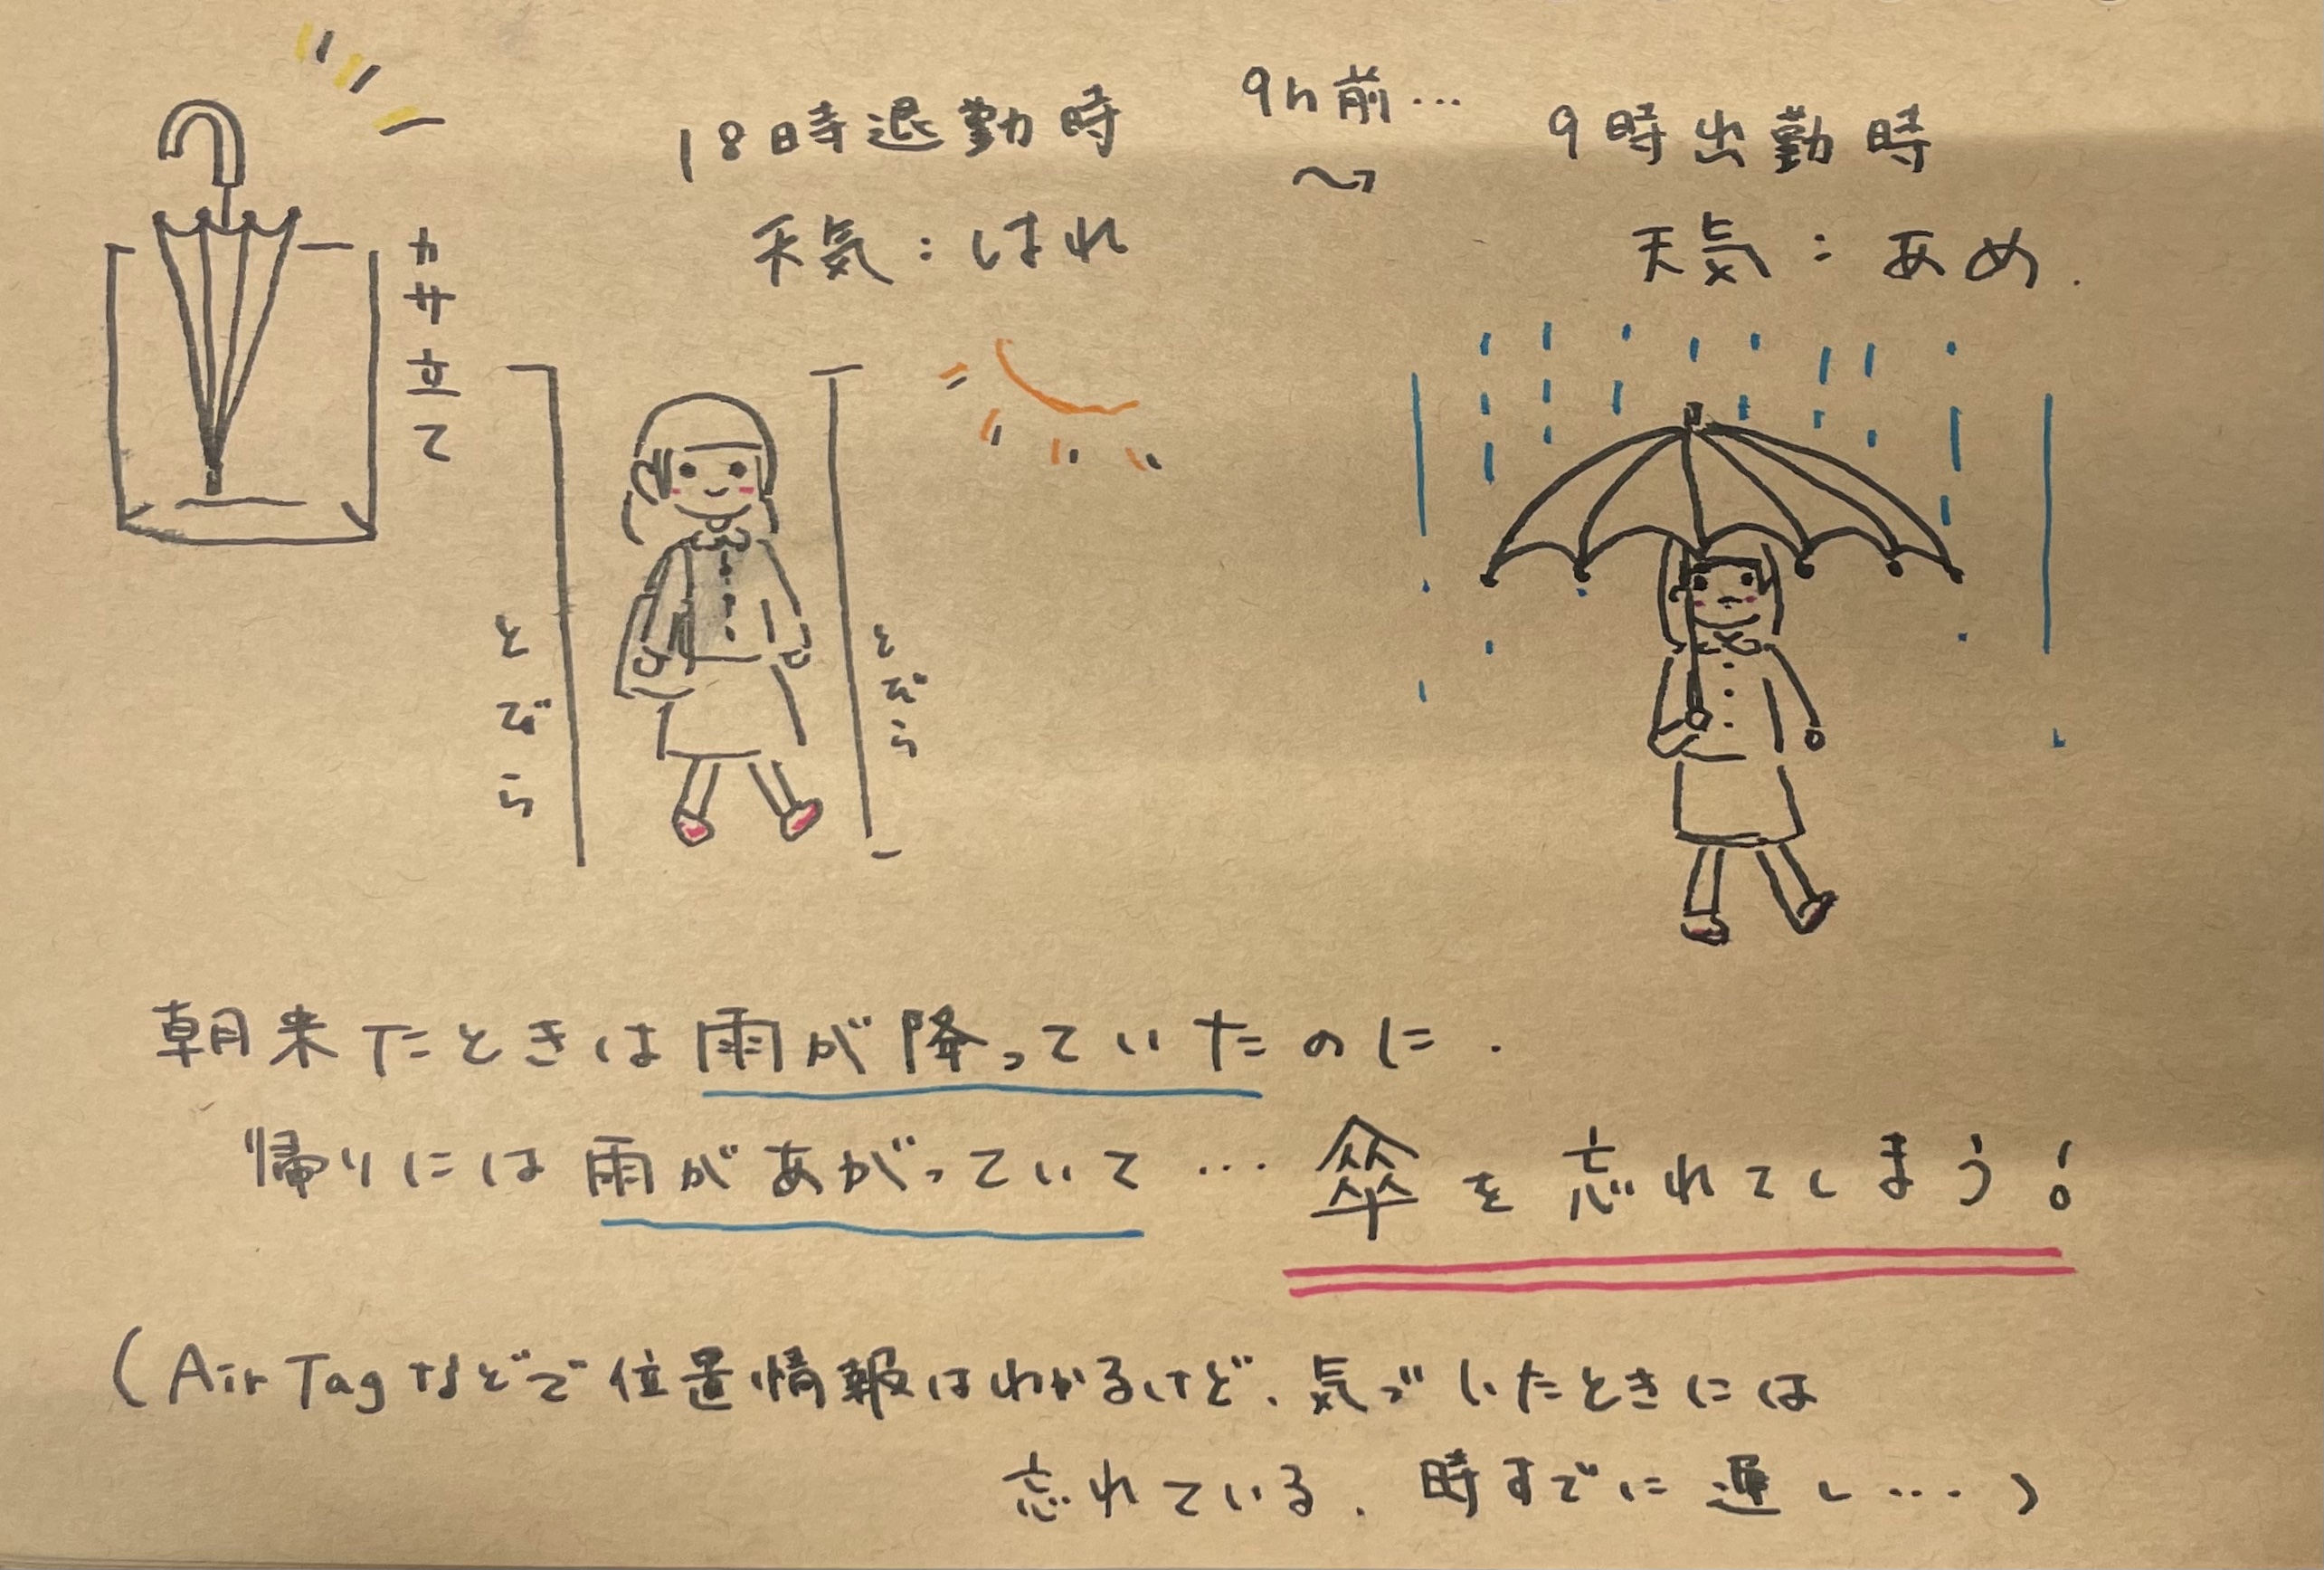 18時退勤時
天気：はれ
9h前…
9時出勤時
天気：あめ．
カサ立て
とびら
とびら
朝来たときは雨が降っていたのに．
帰りには雨があがっていて… 傘を忘れてしまう！
（AirTagなどで位置情報はわかるけど、気づいたときには
忘れている．時すでに遅し…）